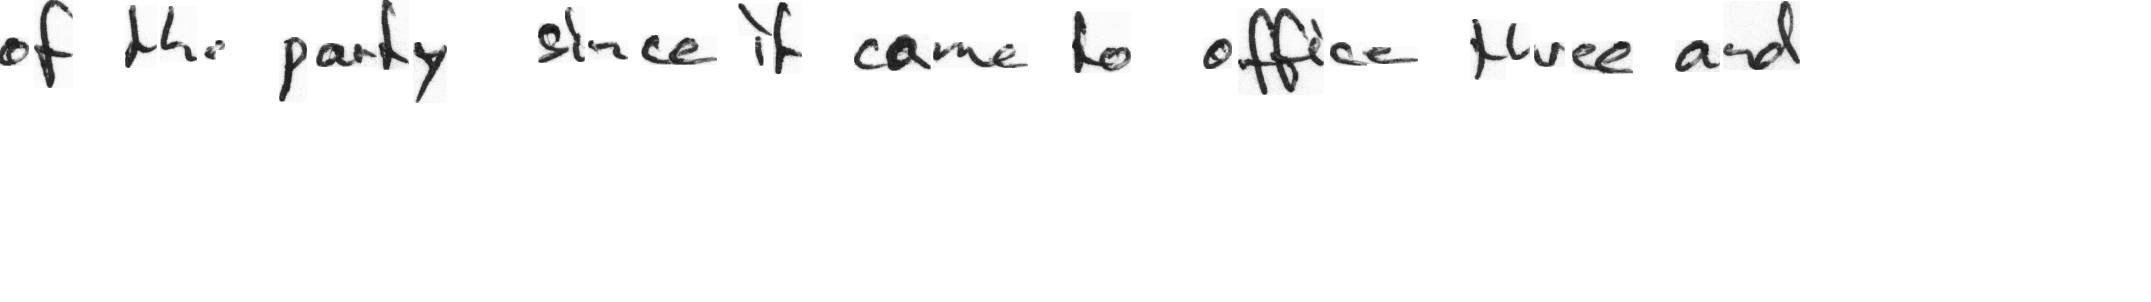 of the party since it came to office three and